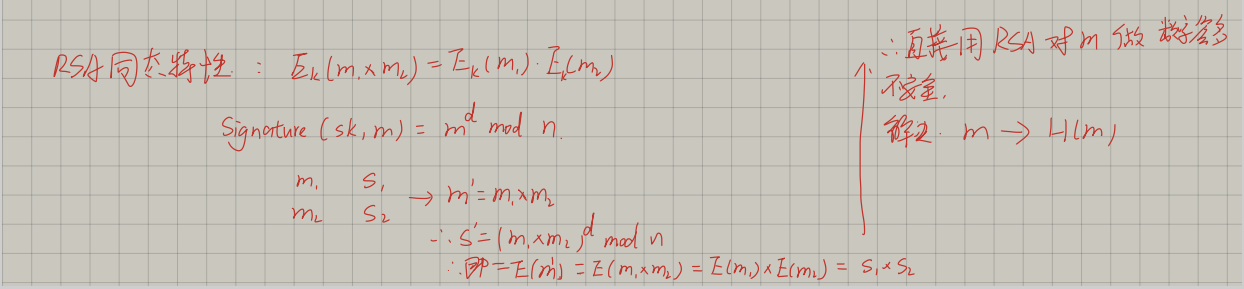 RSA同态特性: E_k(m₁×m₂) = E_k(m₁)·E_k(m₂)
Signature (sk, m) = m^d mod n.
m₁ S₁
m₂ S₂ → m' = m₁×m₂
∴ S' = (m₁×m₂)^d mod n
∴ 即 = E(m') = E(m₁×m₂) = E(m₁)×E(m₂) = S₁×S₂
∴ 直接用RSA对m做数字签名
不安全.
解决. m → H(m)